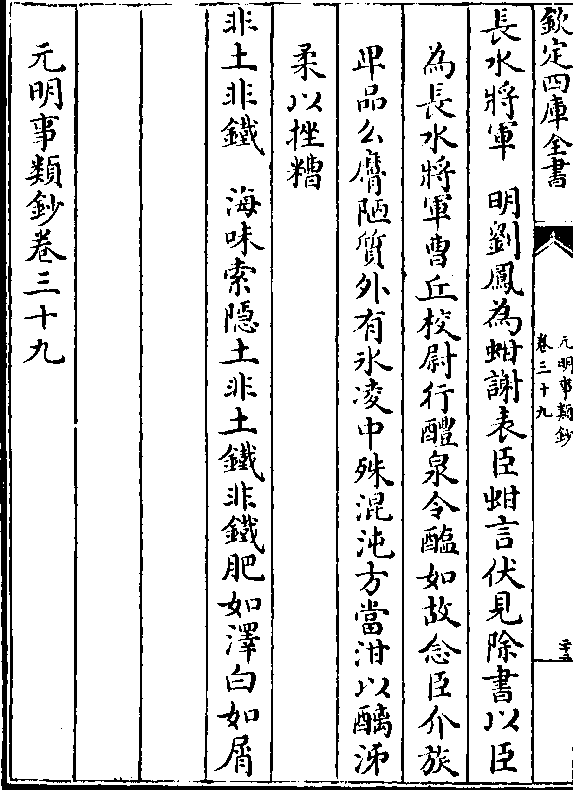 欽定四庫全書
元明事類鈔
卷三十九
長水將軍　明劉鳳為蚶謝表臣蚶言伏見除書以臣
為長水將軍曹丘校尉行醴泉令醢如故念臣介族
卑品么膺陋質外有氷凌中殊混沌方當泔以醨沸
柔以挫糟
非土非鐵　海味索隱土非土鐵非鐵肥如澤白如屑
元明事類鈔卷三十九